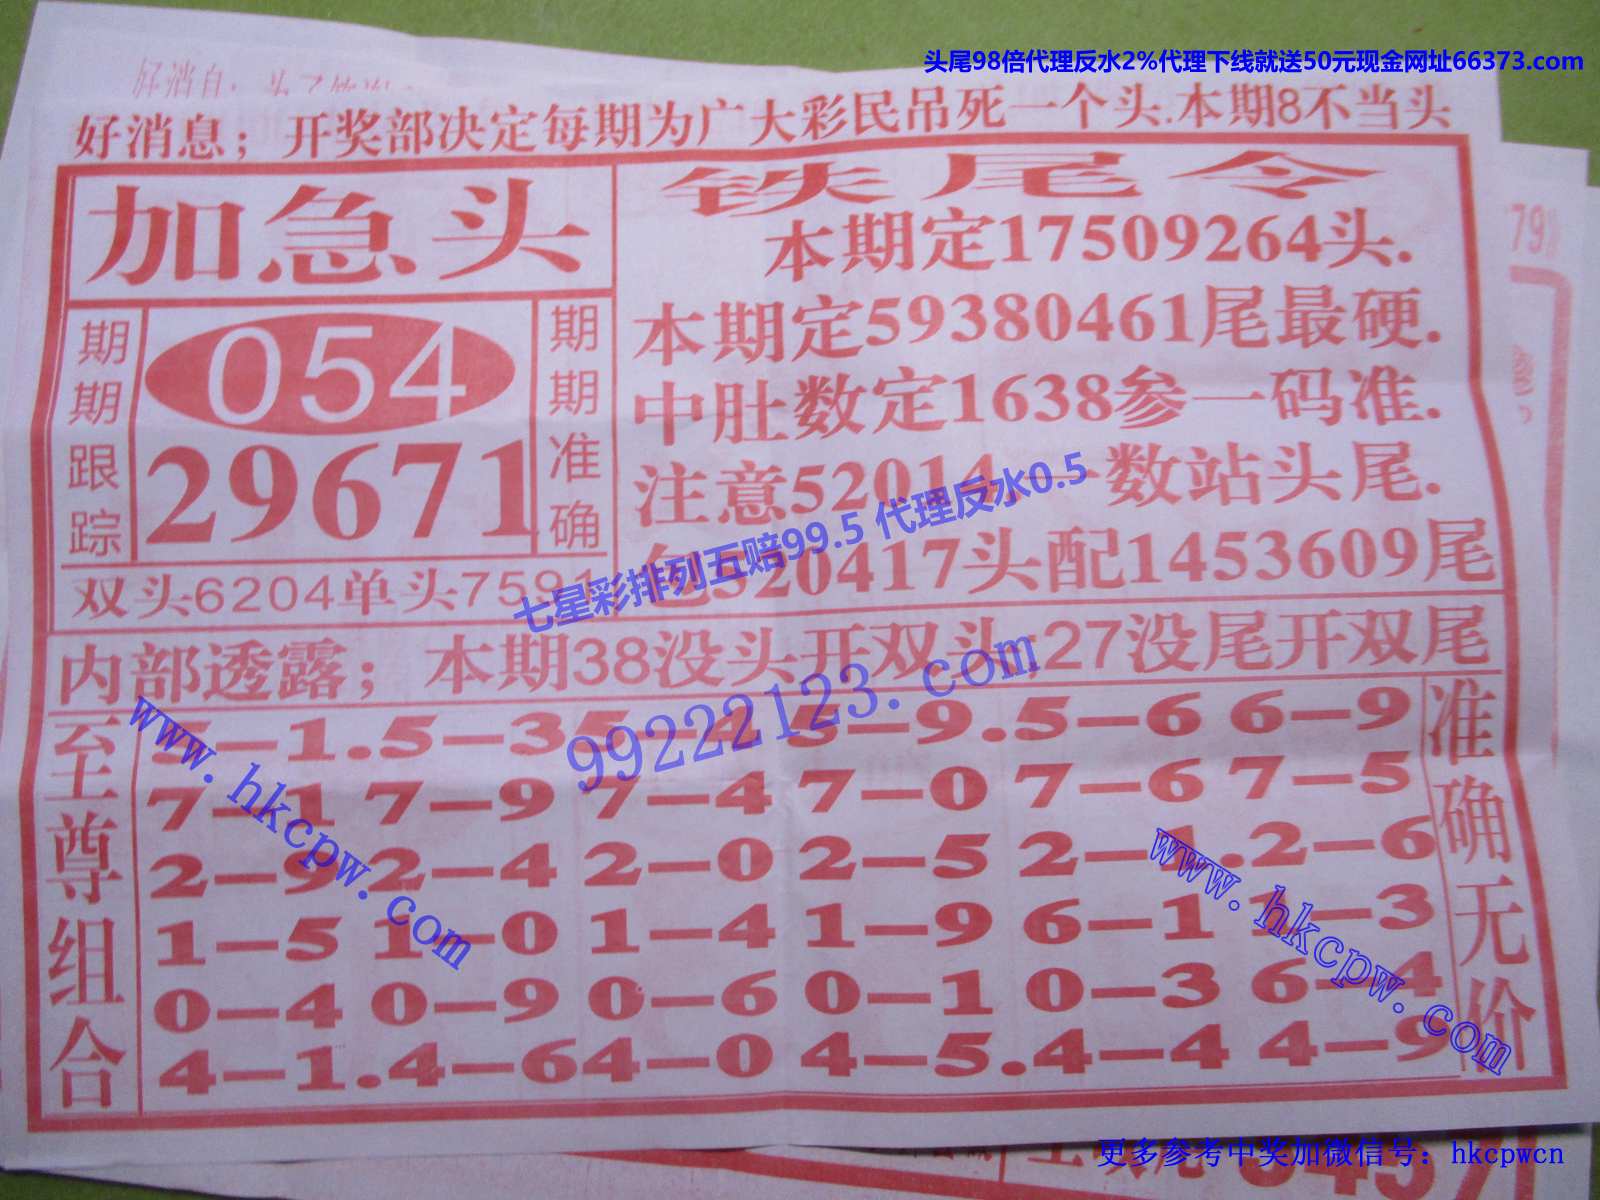 头尾98倍代理反水2%代理下线就送50元现金网址66373.com
好消息；开奖部决定每期为广大彩民吊死一个头.本期8不当头
加急头
期期跟踪
054
29671
期期准确
双头6204单头759
铁尾令
本期定17509264头.
本期定59380461尾最硬.
中肚数定1638参一码准.
注意52014一数站头尾.
包520417头配1453609尾
七星彩排列五赔99.5 代理反水0.5
内部透露；本期38没头开双头.27没尾开双尾
99222123.com
至尊组合
5—1.5—3 5—4 5—9.5—6 6—9
7—1 7—9 7—4 7—0 7—6 7—5
2—9 2—4 2—0 2—5 2—1.2—6
1—5 1—0 1—4 1—9 6—1 1—3
0—4 0—9 0—6 0—1 0—3 6—4
4—1.4—6 4—0 4—5.4—4 4—9
准确无价
www.hkcpw.com
www.hkcpw.com
更多参考中奖加微信号：hkcpwcn